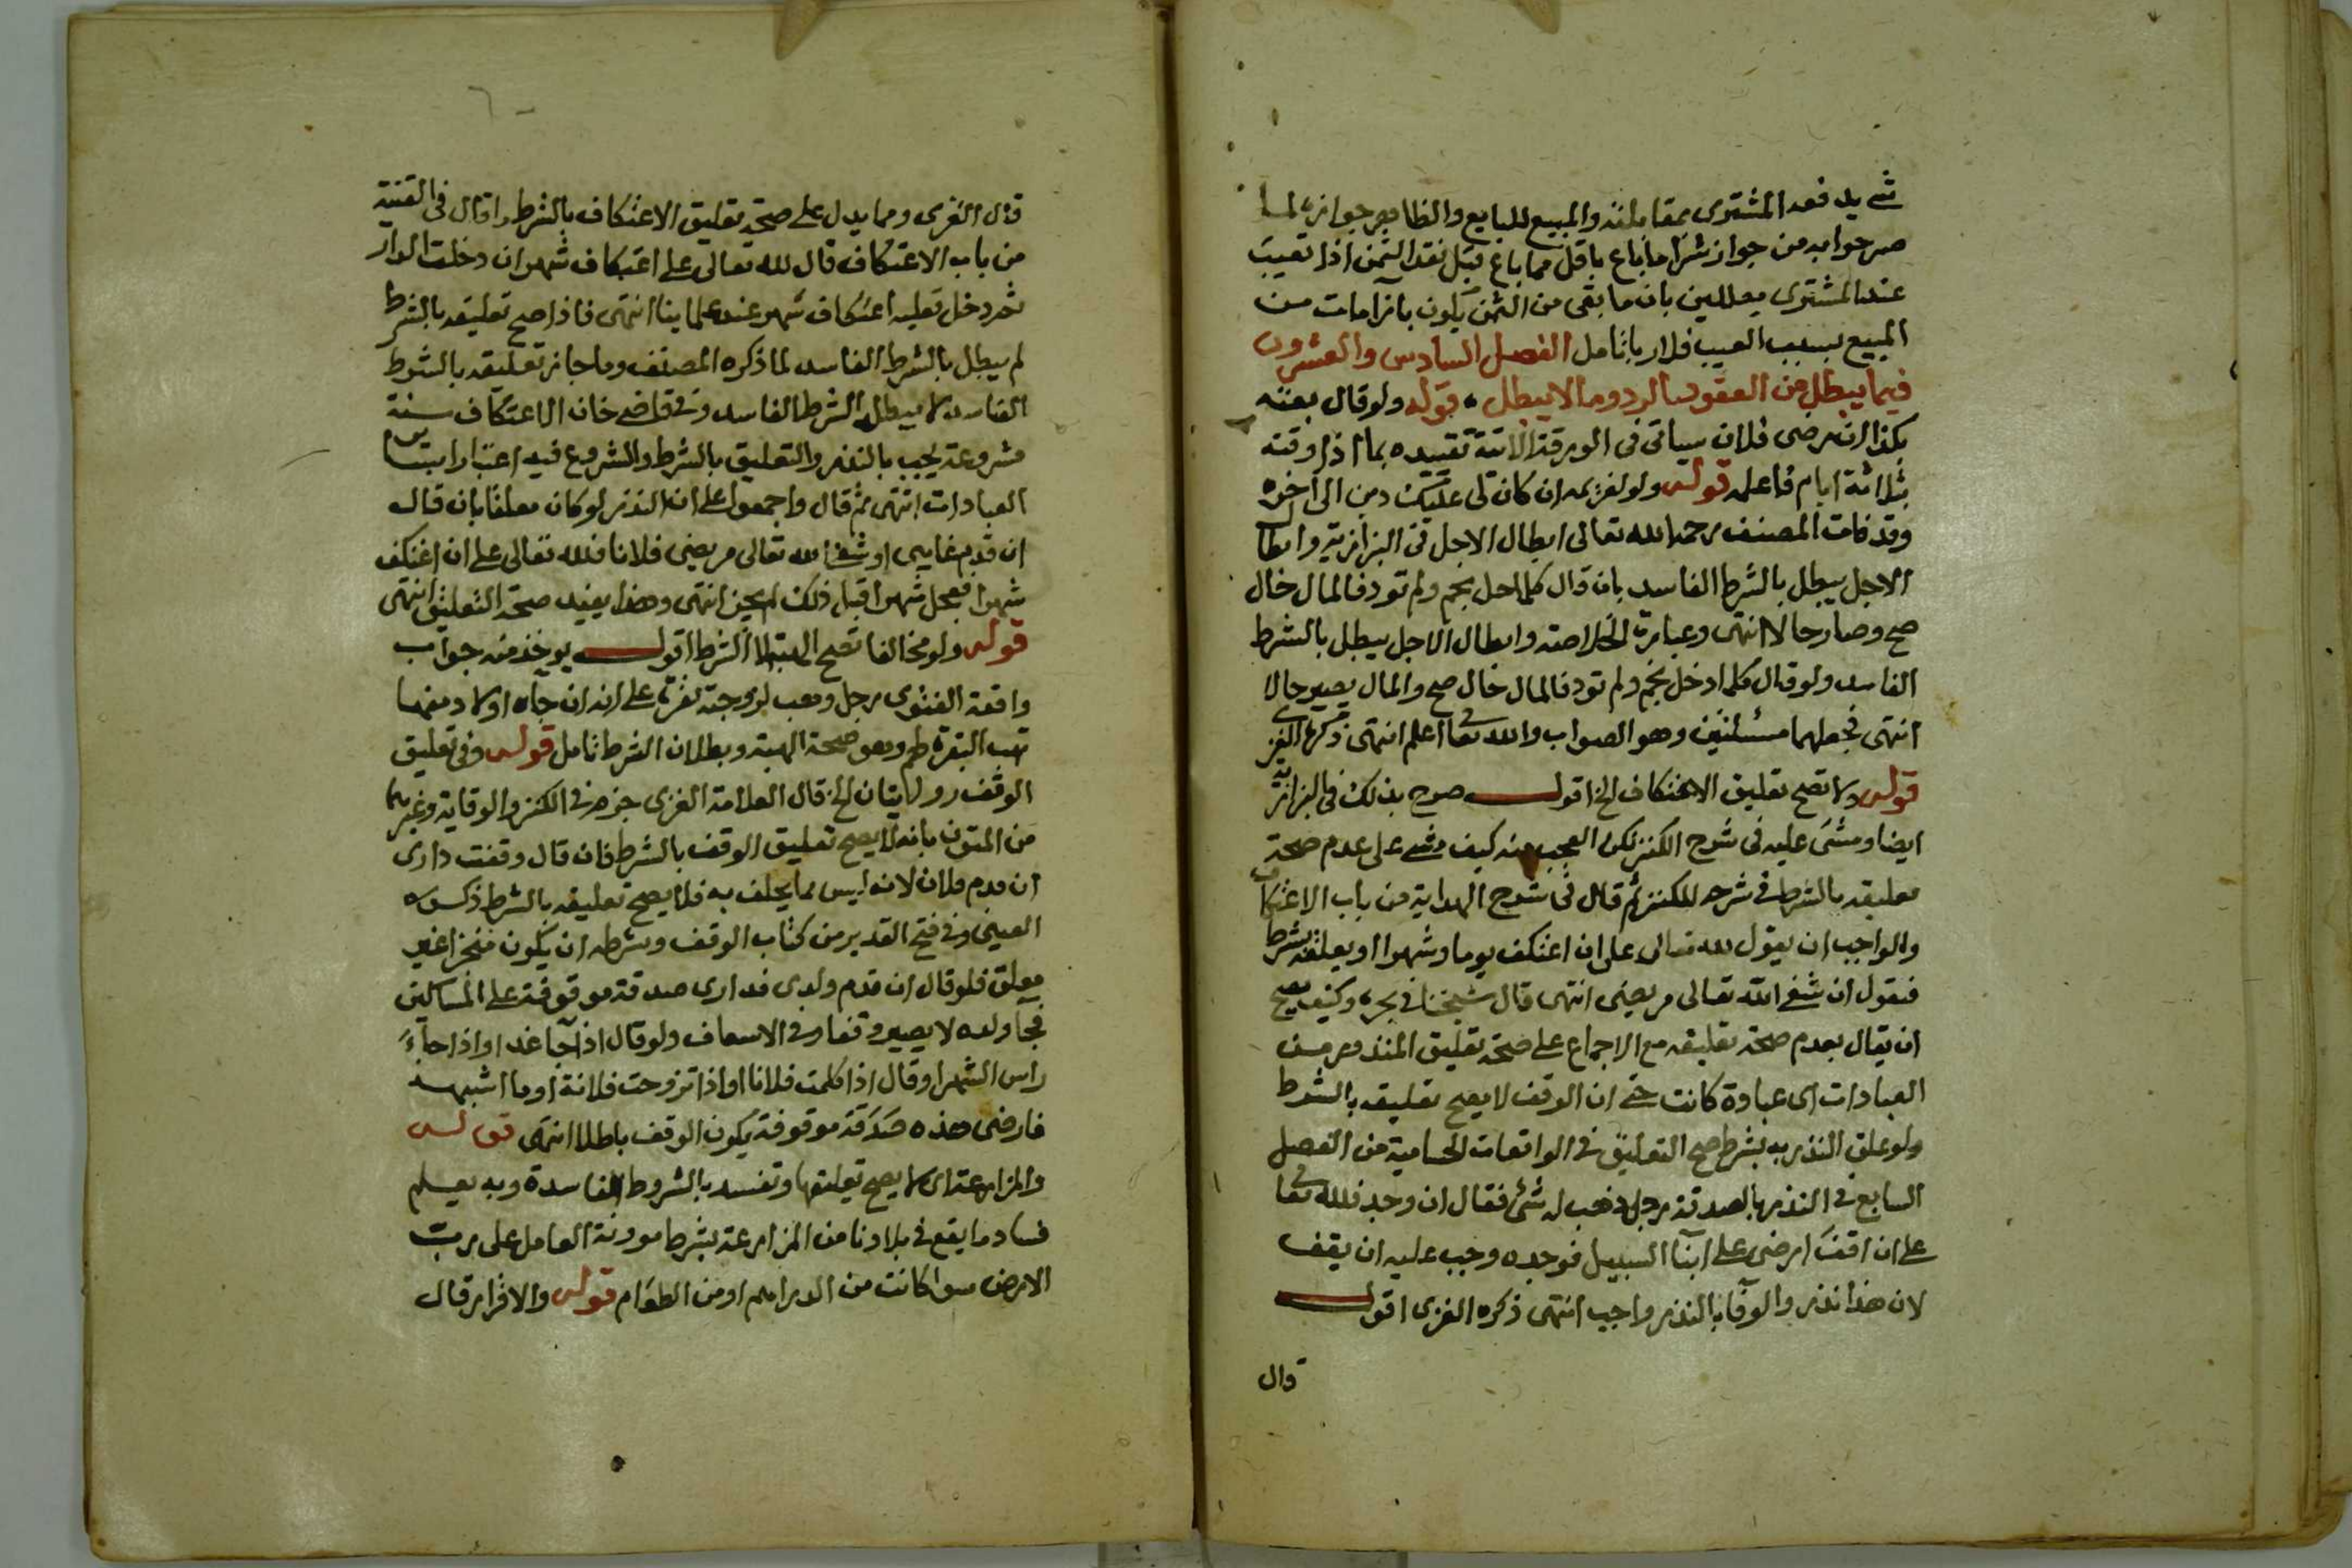 شي يدفعه المشترى بمقابلته والمبيع للبايع والظاهر جوازه لما
صرحوا به من جواز شرا ما باع باقل مما باع قبل نقد الثمن اذا تعيب
عند المشترى معللين بان ما بقى من الثمن يكون بازا مات من
المبيع بسبب العيب فلا ربا تامل الفصل السادس والعشرون
فيما يبطل من العقود بالرد وما لا يبطل قوله ولو قال بعته
بكذا ان رضى فلان سياتى فى الورقة الاتية تقييده بما اذا وقته
بثلاثة ايام فاعلمه قوله ولو لغريمه ان كان لى عليك دين الى اخره
وقد فات المصنف رحمه الله تعالى ابطال الاجل ففى البزازية وابطال
الاجل يبطل بالشرط الفاسد بان قال كلما حل نجم ولم تود فالمال حال
صح وصار حالا انتهى وعبارة الخلاصة وابطال الاجل يبطل بالشرط
الفاسد ولو قال كلما دخل نجم ولم تود فالمال حال صح والمال يصير حالا
انتهى فجعلهما مسئلتين وهو الصواب والله تعالى اعلم انتهى ذكره الغزى
قوله ولا تصح تعليق الاعتكاف الخ اقول صرح بذلك فى البزازية
ايضا ومشى عليه فى شرح الكنز لكن العجب منه كيف مشى على عدم صحة
تعليقه بالشرط فى شرحه للكنز ثم قال فى شرح الهداية من باب الاعتكاف
والواجب ان يقول لله تعالى على ان اعتكف يوما وشهرا او يعلقه بشرط
فيقول ان شفى الله تعالى مريضى انتهى قال شيخنا فى بحره وكيف يصح
ان يقال بعدم صحة تعليقه مع الاجماع على صحة تعليق المنذور من
العبادات اى عبادة كانت حتى ان الوقف لا يصح تعليقه بالشرط
ولو علق النذر به بشرط صح التعليق فى الواقعات الحسامية من الفصل
السابع فى النذر بالصدقة رجل ذهب له شئ فقال ان وجد فلله تعالى
على ان اقف ارضى على ابنآ السبيل فوجده وجب عليه ان يقف
لان هذا نذر والوفا بالنذر واجب انتهى ذكره الغزى اقول
قال
قال الغزى ومما يدل على صحة تعليق الاعتكاف بالشرط ما قال فى القنية
من باب الاعتكاف قال لله تعالى على اعتكاف شهر ان دخلت الدار
ثم دخل فعليه اعتكاف شهر عند علماينا انتهى فاذا صح تعليقه بالشرط
لم يبطل بالشرط الفاسد لما ذكره المصنف وما جاز تعليقه بالشرط
الفاسد لا يبطل بالشرط الفاسد وفى قاضى خان الاعتكاف سنة
مشروعة يجب بالنذر والتعليق بالشرط والشروع فيه اعتبارا بساير
العبادات انتهى ثم قال واجمعوا على ان النذر لو كان معلقا بان قال
ان قدم غايبى او شفى الله تعالى مريضى فلانا فلله تعالى على ان اعتكف
شهرا فعجل شهرا قبل ذلك لم يجز انتهى وهذا يفيد صحة التعليق انتهى
قوله ولو مخالفا تصح الهبة لا الشرط اقول يوخذ منه جواب
واقعة الفتوى رجل وهب لزوجته بقرة على انه ان جآه اولاد منها
تهب البقرة لهم وهو صحة الهبة وبطلان الشرط تامل قوله وفى تعليق
الوقف روايتان الخ قال العلامة الغزى جزم فى الكنز والوقاية وغيرهما
من المتون بانه لا يصح تعليق الوقف بالشرط فان قال وقفت دارى
ان قدم فلان لانه ليس مما يحلف به فلا يصح تعليقه بالشرط ذكره
العينى وفى فتح القدير من كتاب الوقف وشرطه ان يكون منجزا غير
معلق فلو قال ان قدم ولدى فدارى صدقة موقوفة على المساكين
فجا ولده لا يصير وقفا وفى الاسعاف ولو قال اذا جا غد او اذا جآء
راس الشهر او قال اذا كلمت فلانا او اذا تزوجت فلانة او ما اشبهه
فارضى هذه صدقة موقوفة يكون الوقف باطلا انتهى قوله
والمزارعة اى لا يصح تعليقها وتفسد بالشروط الفاسدة وبه يعلم
فساد ما يقع فى بلادنا من المزارعة بشرط موونة العامل على رب
الارض سوا كانت من الدراهم او من الطعام قوله والاقرار قال